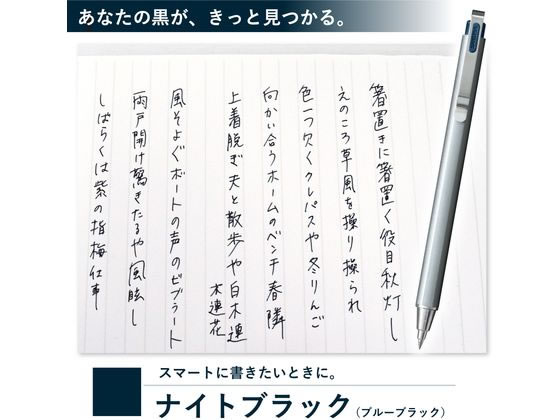 あなたの黒が、きっと見つかる。
箸置きに箸置く役目秋灯し
えのころ草風を操り操られ
色一つ欠くクレパスや冬りんご
向かい合うホームのベンチ春隣
上着脱ぎ夫と散歩や白木蓮
木蓮花
風そよぐボートの声のビブラート
雨戸開け驚きたるや風眩し
しばらくは紫の指梅仕事
スマートに書きたいときに。
ナイトブラック(ブルーブラック)